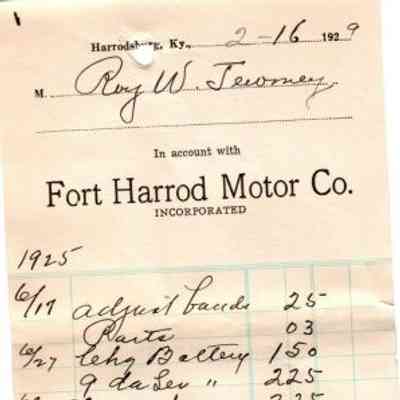 Harrodsburg, Ky., 2-16 1929
M. Roy W. Twomey
In account with
Fort Harrod Motor Co.
INCORPORATED
1925
6/17 adjust bands 25
Parts 03
6/27 Chg Battery 1 50
9 da Ser " 2 25
2 25